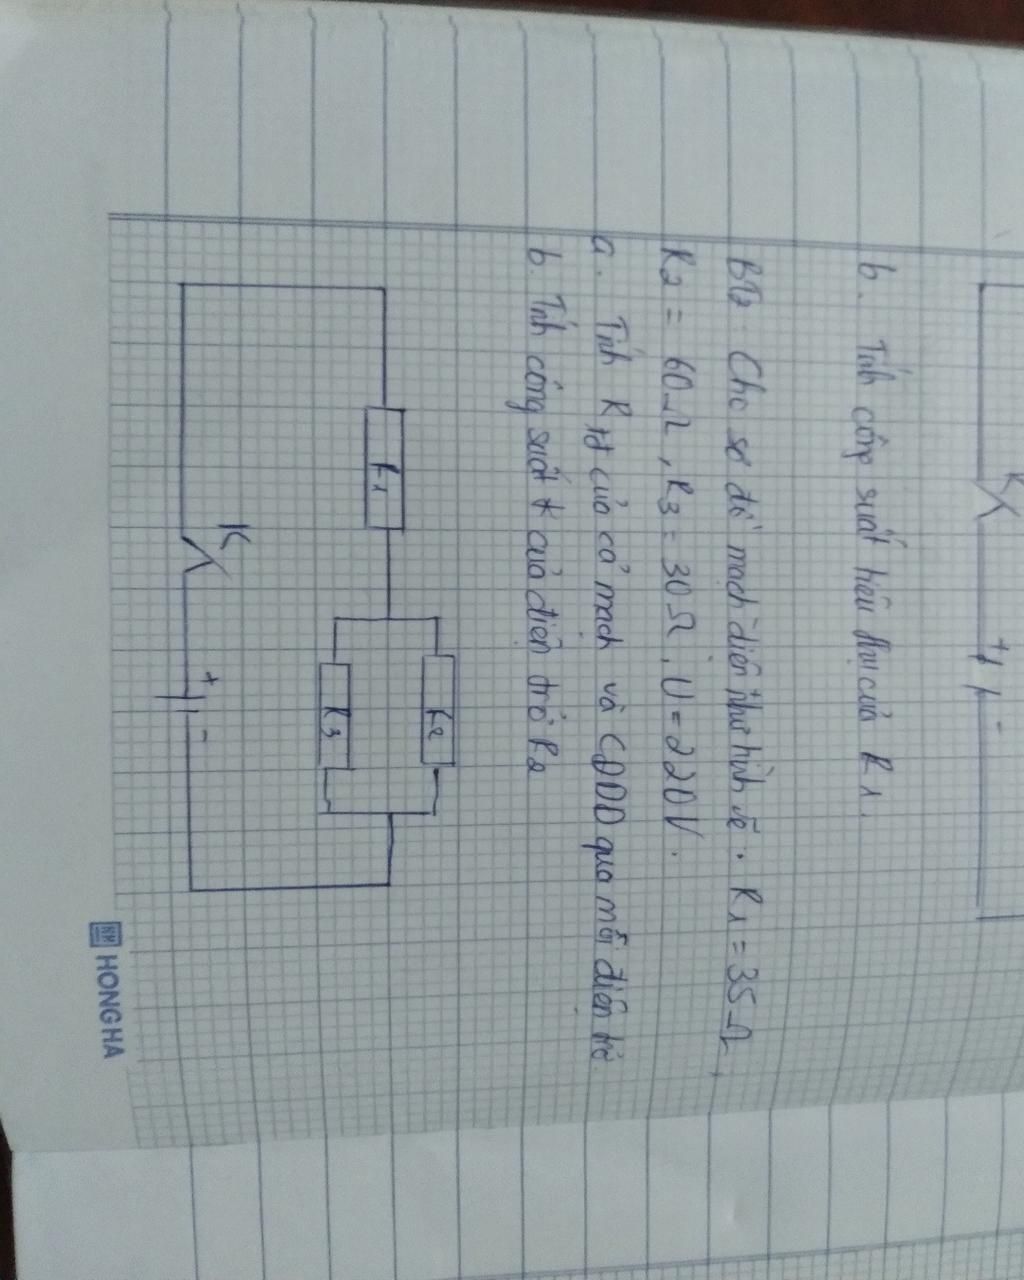 K
+ -
b. Tính công suất tiêu thụ của R1.
BT2. Cho sơ đồ mạch điện như hình vẽ. R1 = 35Ω,
R2 = 60Ω, R3 = 30Ω, U = 220V.
a. Tính Rtđ của cả mạch và CĐDĐ qua mỗi điện trở
b. Tính công suất t của điện trở R2
R2
R1
R3
K
+ -
HONG HA